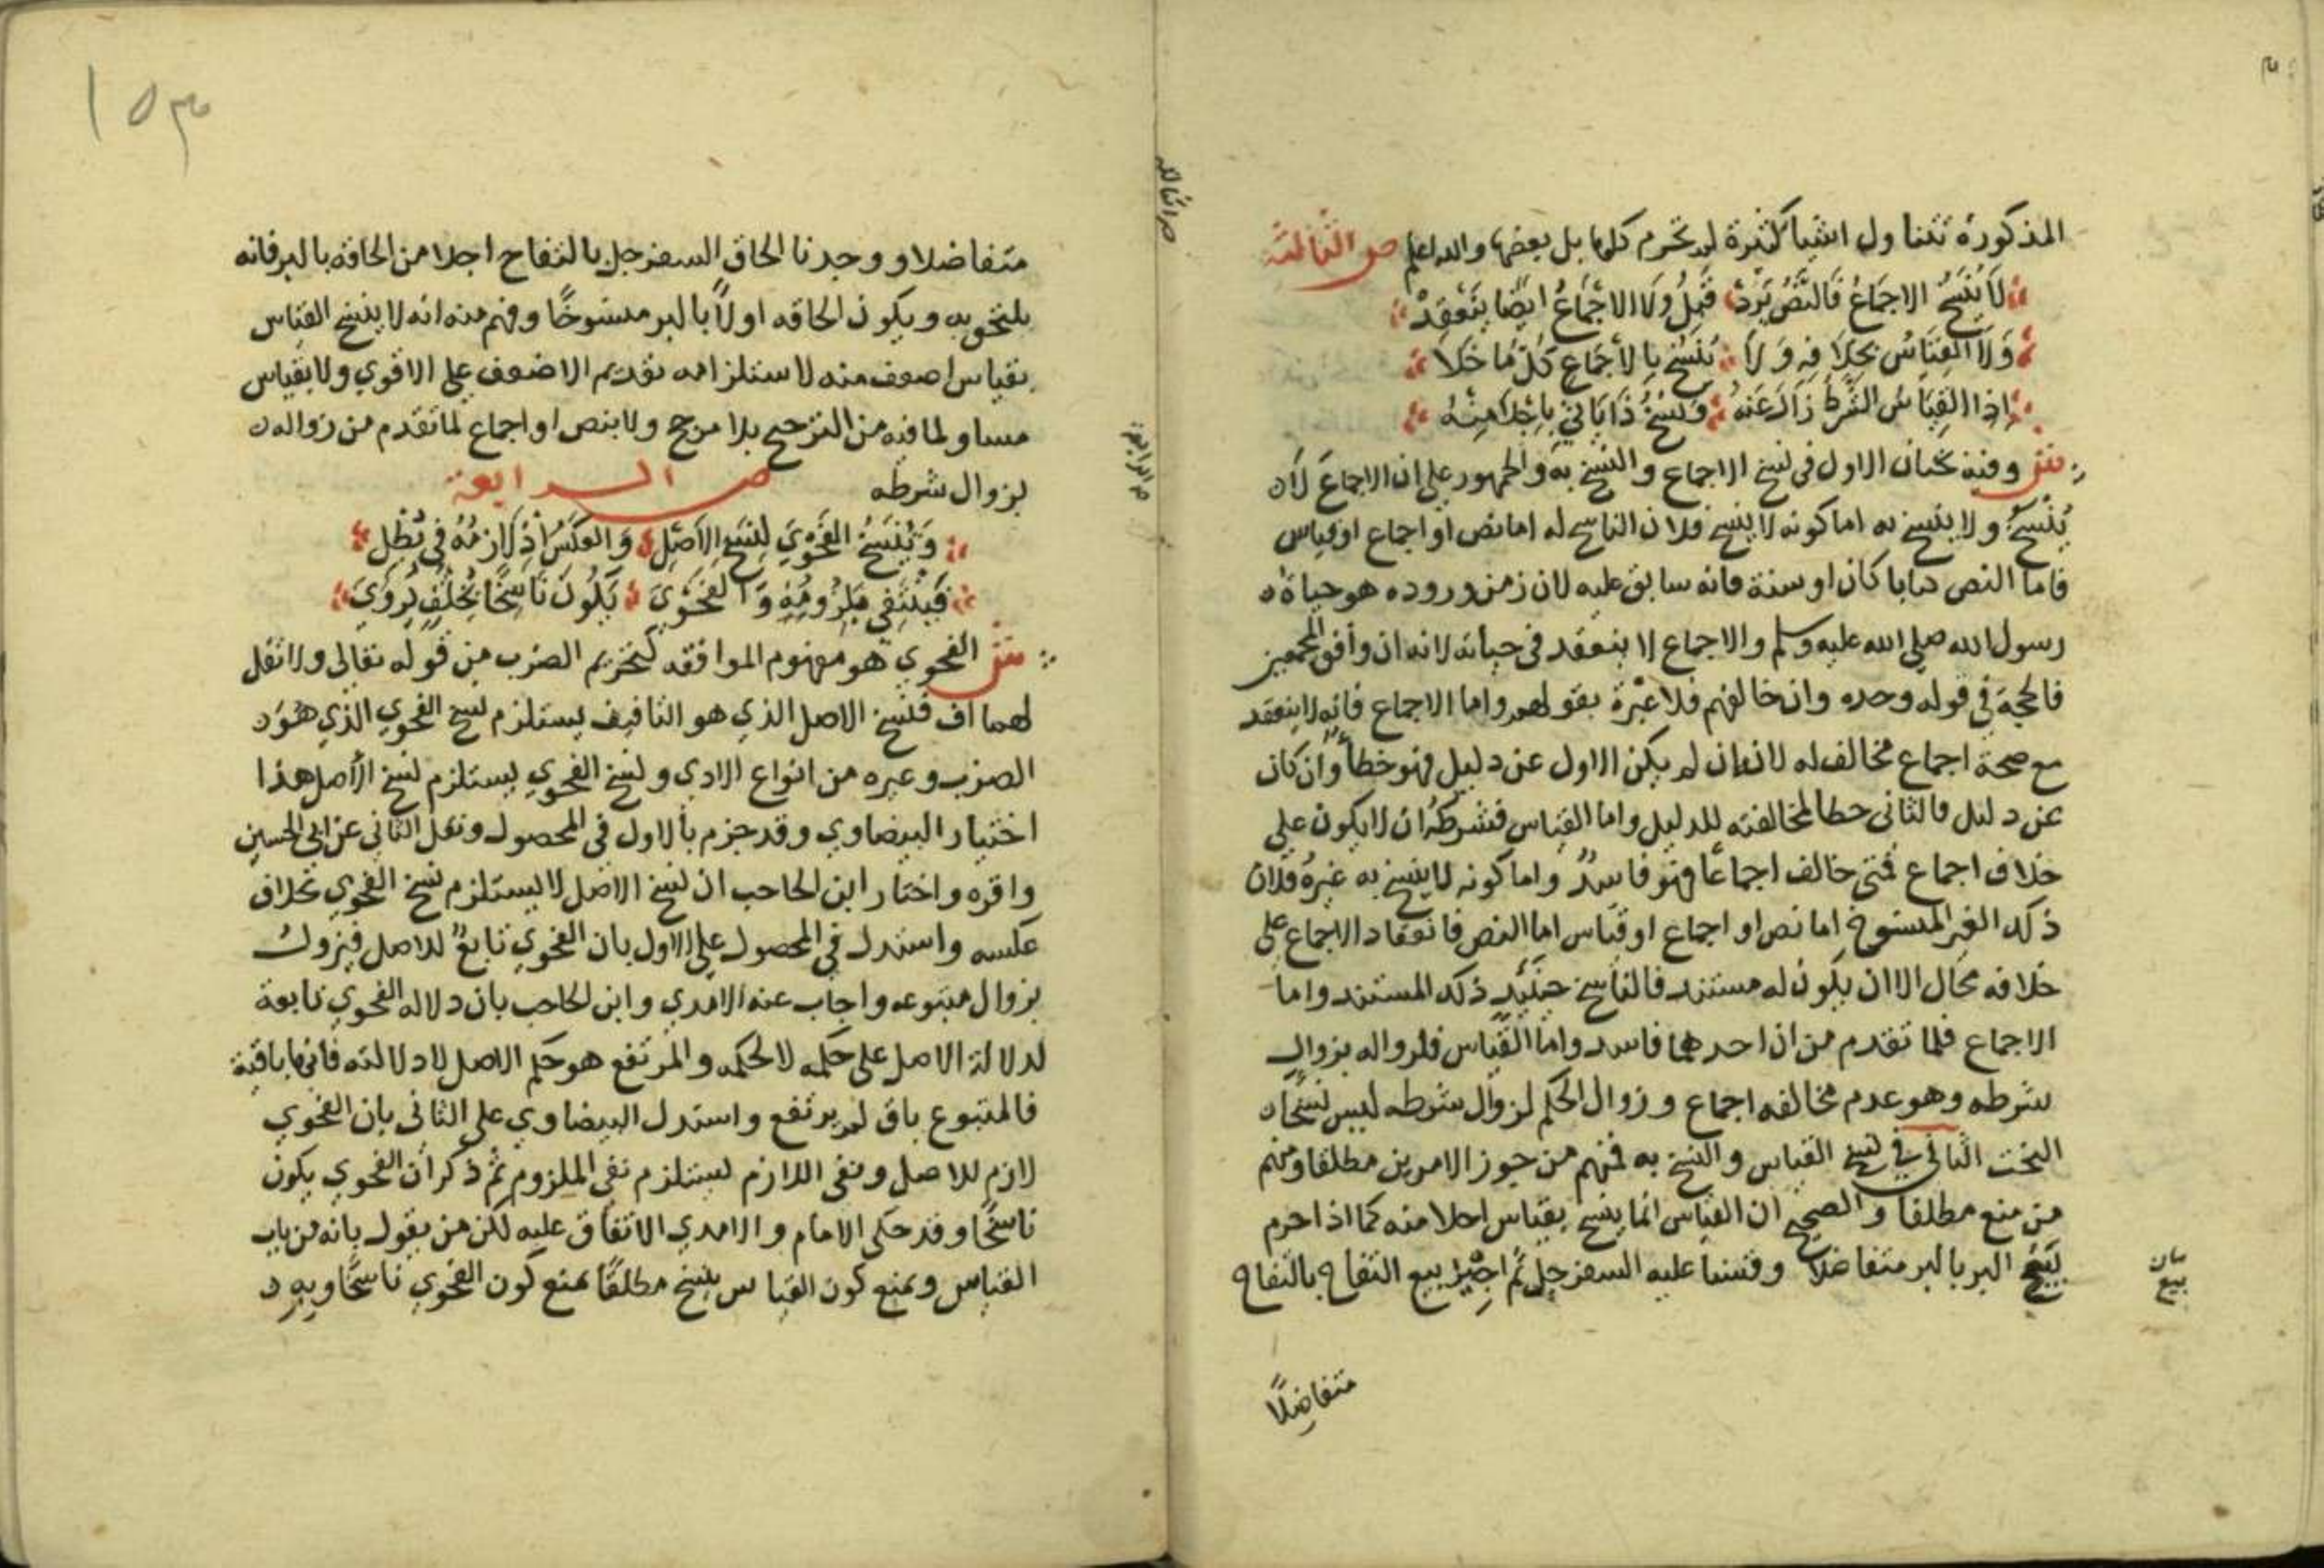 المذكورة تتناول اشيا كثيرة لم تحرم كلها بل بعضها والله اعلم ص الثالثة
لَا يُنْسَخُ الاجمَاعُ فَالنَّصُّ يَرِدْ قَبْلُ وَلَا الاجْمَاعُ ايضًا يَنْعَقِدْ
وَلَا القِيَاسُ بخِلَافِهِ وَلَا يُنْسَخُ بِالاجْمَاعِ كُلُّ مَا خَلَا
اِذَا القِيَاسُ الشَّرطُ زَالَ عَنهُ وَنَسْخُ ذَا يَاتِي بِاجْلَا مِنْهُ
ش وفيه بحثان الاول في نسخ الاجماع والنسخ به والجمهور على ان الاجماع لا
يُنْسَخُ ولا ينسخ به اما كونه لا ينسخ فلان الناسخ له اما نص او اجماع او قياس
فاما النص كتابا كان او سنة فانه سابق عليه لان زمن وروده هو حياة
رسول الله صلى الله عليه وسلم والاجماع لا ينعقد في حياته لانه ان وافق المجمعين
فالحجة في قوله وحده وان خالفهم فلا عبرة بقولهم واما الاجماع فانه لا ينعقد
مع صحة اجماع مخالف له لانه ان لم يكن الاول عن دليل فهو خطأ وان كان
عن دليل فالثاني خطا لمخالفته للدليل واما القياس فشرطه ان لا يكون على
خلاف اجماع فمتى خالف اجماعا فهو فاسد واما كونه لا ينسخ به غيره فلان
ذلك الغير المنسوخ اما نص او اجماع او قياس اما النص فانعقاد الاجماع على
خلافه محال الا ان يكون له مستند فالناسخ حينئذ ذلك المستند واما
الاجماع فلما تقدم من ان احدهما فاسد واما القياس فلزواله بزوال
شرطه وهو عدم مخالفه اجماع وزوال الحكم لزوال شرطه ليس نسخا
البحث الثاني في نسخ القياس والنسخ به فمنهم من جوز الامرين مطلقا ومنهم
من منع مطلقا والصحيح ان القياس انما ينسخ بقياس اجلا منه كما اذا حرم
بَيْع البر بالبر متفاضلا وقسنا عليه السفرجل ثم اجيز بيع التفاح بالتفاح
بيان
بيع
متفاضلًا
١٥٣
متفاضلا ووجدنا الحاق السفرجل بالتفاح اجلا من الحاقه بالبر فانه
يلتحق به ويكون الحاقه اولا بالبر منسوخًا وفهم منه انه لا ينسخ القياس
بقياس اضعف منه لاستلزامه تقديم الاضعف على الاقوي ولا بقياس
مساو لما فيه من الترجيح بلا مرجح ولا بنص او اجماع لما تقدم من زواله
بزوال شرطه ص الرابعة
وَيُنْسَخُ الفَحْوَي لِنَسْخِ الاَصْلِ وَالعَكْسُ اِذْ لَازِمُهُ فِي ثِقْلِ
فَيَنْتَفِي مَلزُومُهِ وَالفَحْوَي يَكُونُ نَاسِخًا بخُلفٍ يُروَي
ش الفحوي هو مفهوم الموافقه كتحريم الضرب من قوله تعالى ولا تقل
لهما اف فنسخ الاصل الذي هو التافيف يستلزم نسخ الفحوي الذي هو
الضرب وغيره من انواع الاذي ونسخ الفحوي يستلزم نسخ الاصل هذا
اختيار البيضاوي وقد جزم بالاول في المحصول ونقل الثاني عن ابي الحسين
واقره واختار ابن الحاجب ان نسخ الاصل لا يستلزم نسخ الفحوي بخلاف
عكسه واستدل في المحصول على الاول بان الفحوي تابع للاصل فيزول
بزوال متبوعه واجاب عنه الامدي وابن الحاجب بان دلاله الفحوي تابعة
لدلالة الاصل على حكمه لا لحكمه والمرتفع هو حكم الاصل لا دلالته فانها باقية
فالمتبوع باق لم يرتفع واستدل البيضاوي على الثاني بان الفحوي
لازم للاصل ونفي اللازم يستلزم نفي الملزوم ثم ذكر ان الفحوي يكون
ناسخا وقد حكى الامام والامدي الاتفاق عليه لكن من يقول بانه من باب
القياس ويمنع كون القياس ينسخ مطلقا يمنع كون الفحوي ناسخا وبه